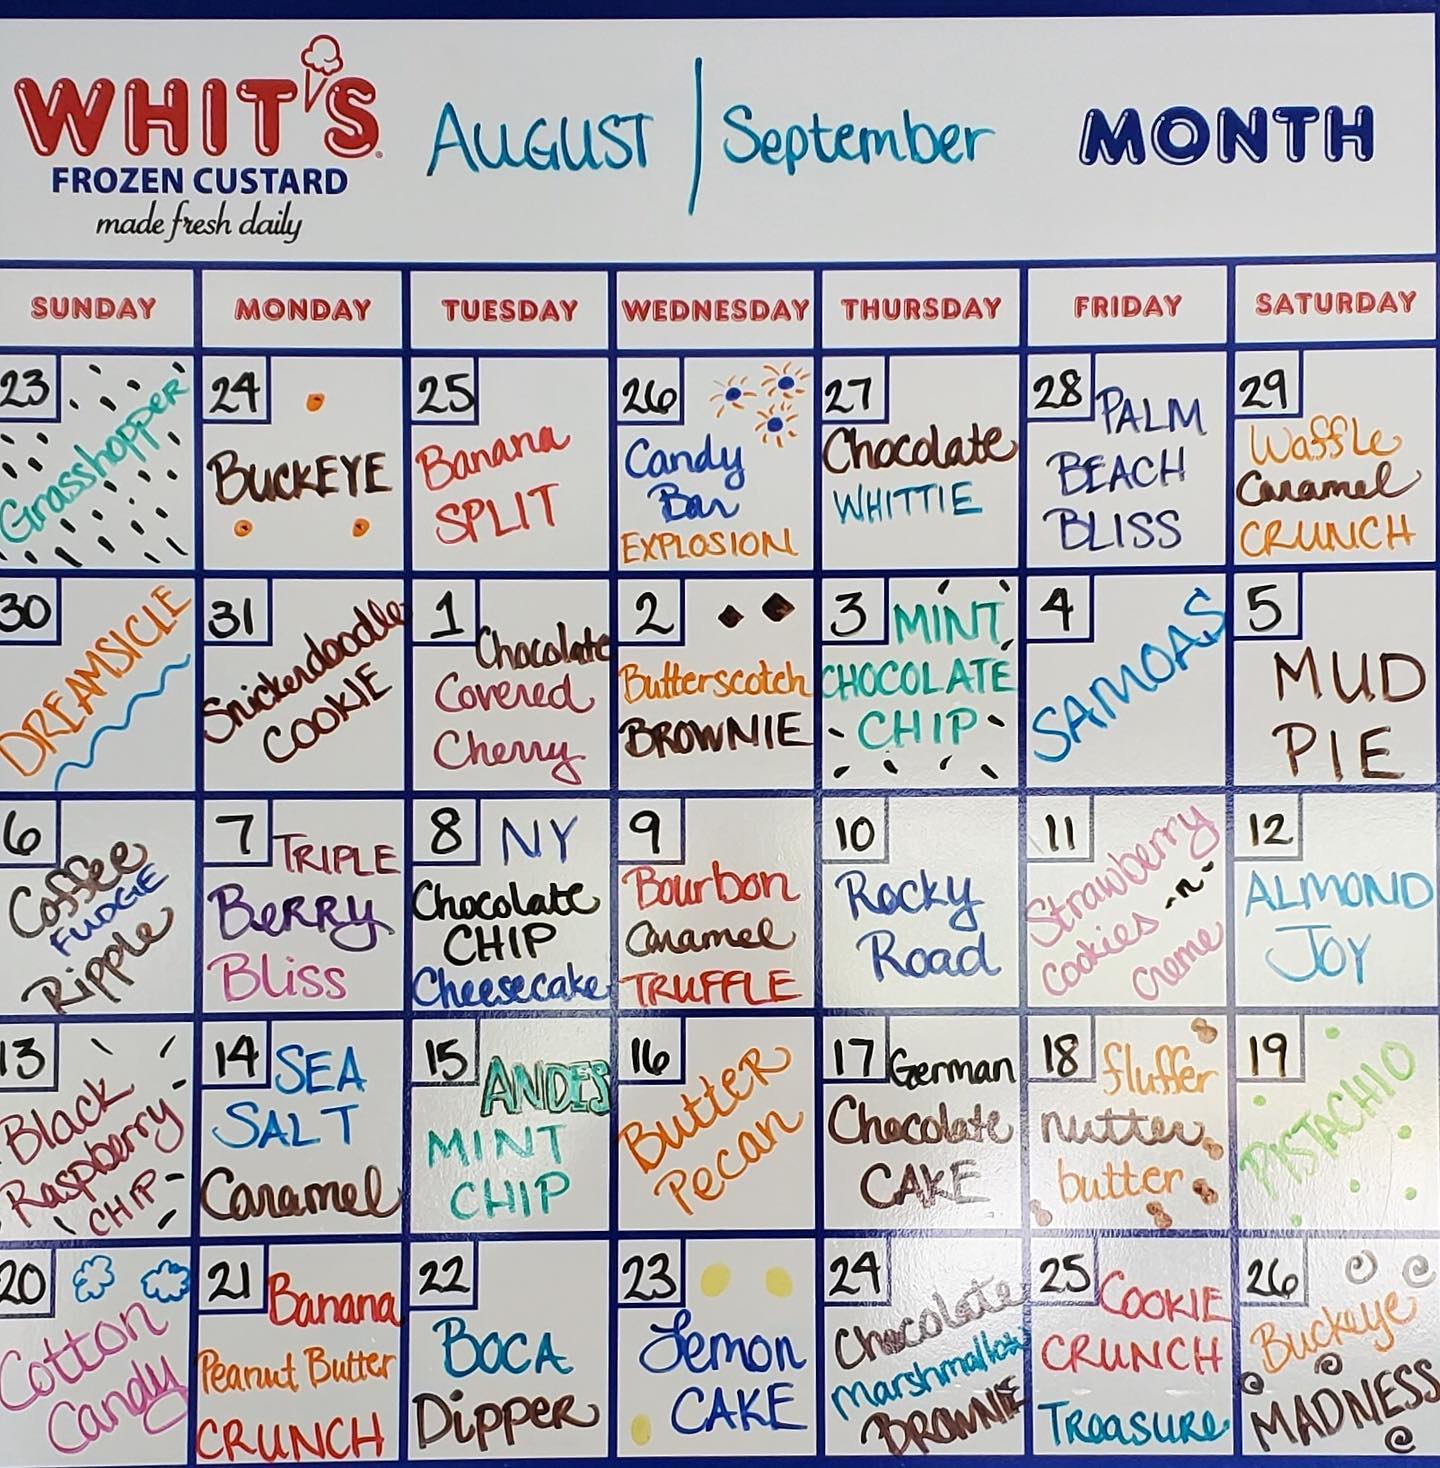 WHIT'S
FROZEN CUSTARD
made fresh daily
AUGUST | September
MONTH
SUNDAY MONDAY TUESDAY WEDNESDAY THURSDAY FRIDAY SATURDAY
23
Grasshopper
24
BUCKEYE
25
Banana
SPLIT
26
Candy
Bar
EXPLOSION
27
Chocolate
WHITTIE
28 PALM
BEACH
BLISS
29
Waffle
Caramel
CRUNCH
30
DREAMSICLE
31
Snickerdoodle
COOKIE
1
Chocolate
Covered
Cherry
2
Butterscotch
BROWNIE
3 MINT
CHOCOLATE
CHIP
4
SAMOAS
5
MUD
PIE
6
Coffee
FUDGE
Ripple
7 TRIPLE
Berry
Bliss
8 NY
Chocolate
CHIP
Cheesecake
9
Bourbon
Caramel
TRUFFLE
10
Rocky
Road
11
Strawberry
cookies -n-
creme
12
ALMOND
JOY
13
Black
Raspberry
CHIP
14 SEA
SALT
Caramel
15 ANDES
MINT
CHIP
16
Butter
Pecan
17 German
Chocolate
CAKE
18 fluffer
nutter
butter
19
PISTACHIO
20
Cotton
Candy
21 Banana
Peanut Butter
CRUNCH
22
BOCA
Dipper
23
Lemon
CAKE
24
Chocolate
marshmallow
BROWNIE
25 COOKIE
CRUNCH
Treasure
26
Buckeye
MADNESS